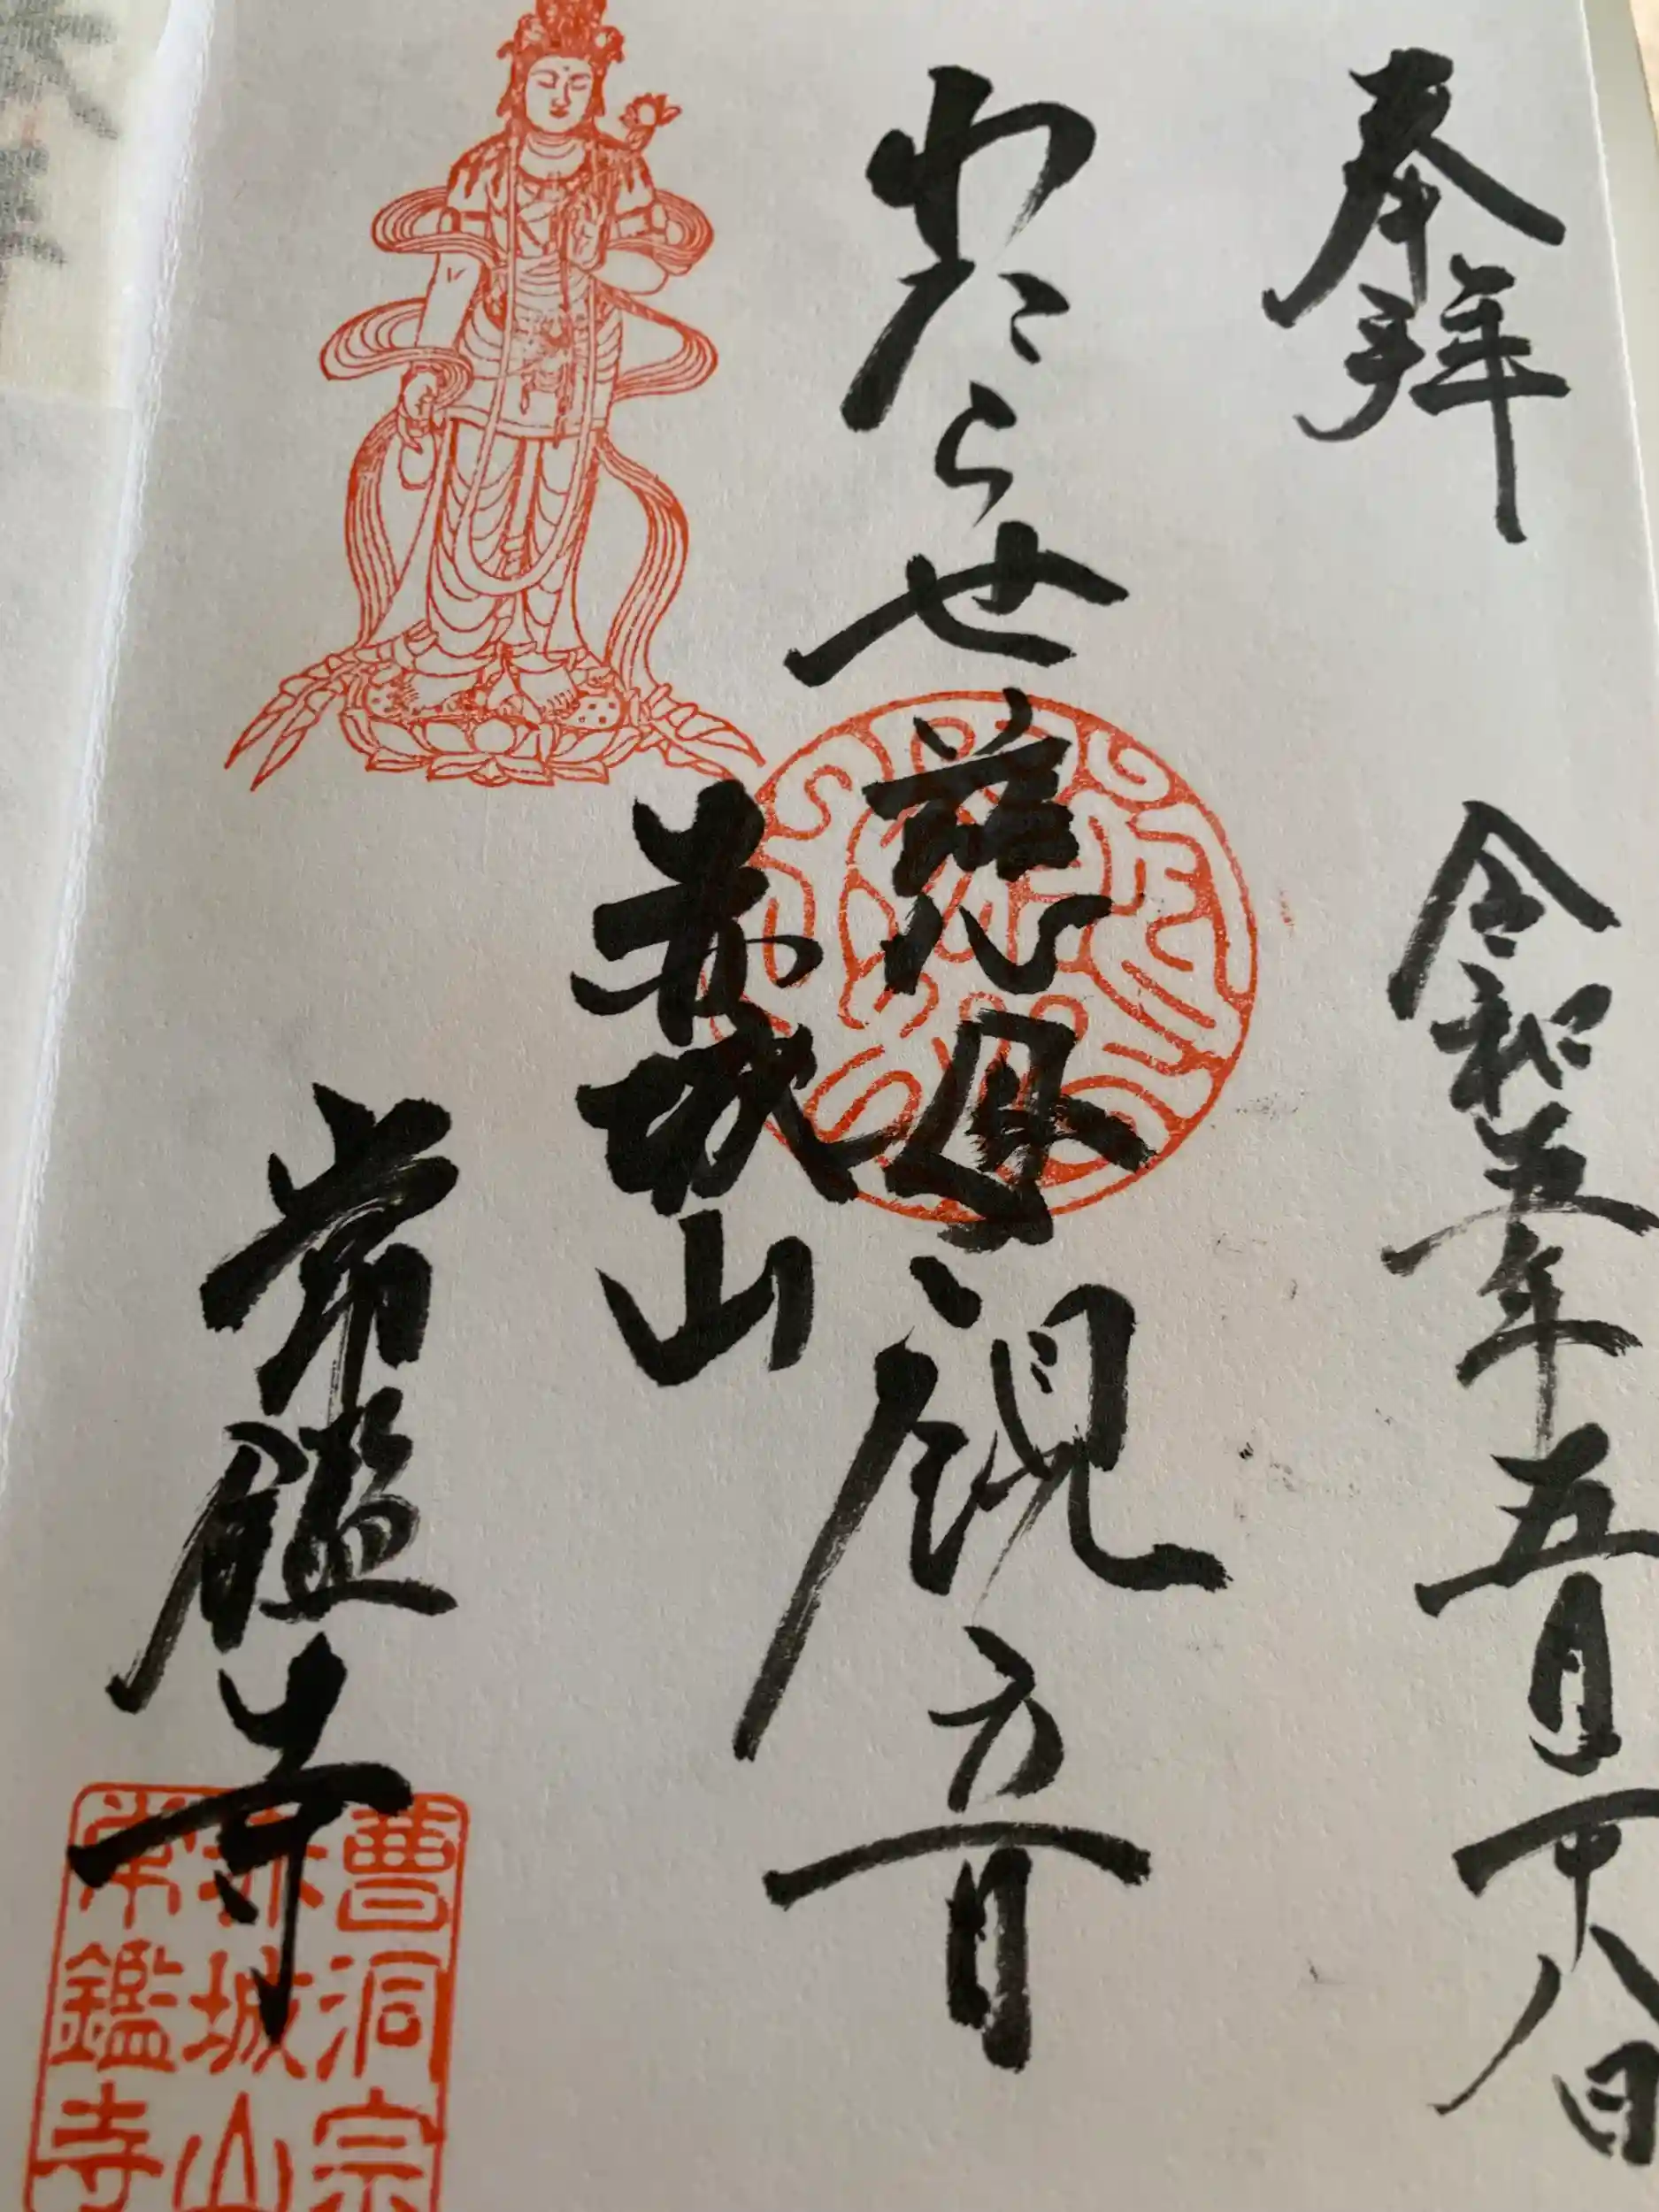 奉拝
令和五年五月十八日
わたらせ慈母観音
赤城山
常鑑寺
曹洞宗
赤城山
常鑑寺